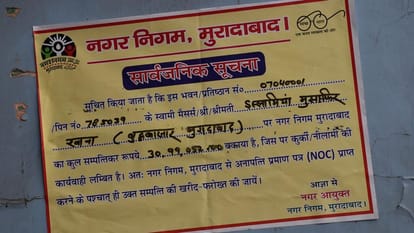 नगर निगम, मुरादाबाद।
सार्वजनिक सूचना
सूचित किया जाता है कि इस भवन/प्रतिष्ठान सं० 07040001
/पिन नं० 785039 के स्वामी मैसर्स/श्री/श्रीमती इस्लामिया मुसाफिर
खाना (बुधबाजार मुरादाबाद) पर नगर निगम मुरादाबाद
का कुल सम्पत्तिकर रूपये, बकाया है, जिस पर कुर्की/नीलामी की
कार्यवाही लम्बित है। अतः नगर निगम, मुरादाबाद से अनापत्ति प्रमाण पत्र (NOC) प्राप्त
करने के पश्चात् ही उक्त सम्पत्ति की खरीद-फरोख्त की जायें।
आज्ञा से
नगर आयुक्त
नगर निगम, मुरादाबाद।